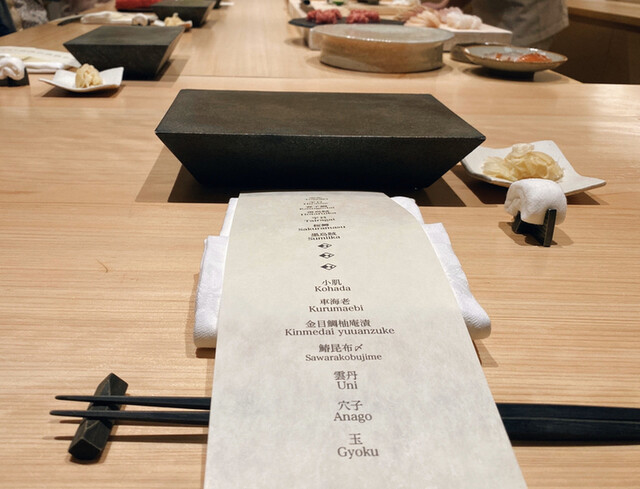 桜鱒
Sakuramasu
墨烏賊
Sumiika
小肌
Kohada
車海老
Kurumaebi
金目鯛柚庵漬
Kinmedai yuuanzuke
鰆昆布〆
Sawarakobujime
雲丹
Uni
穴子
Anago
玉
Gyoku